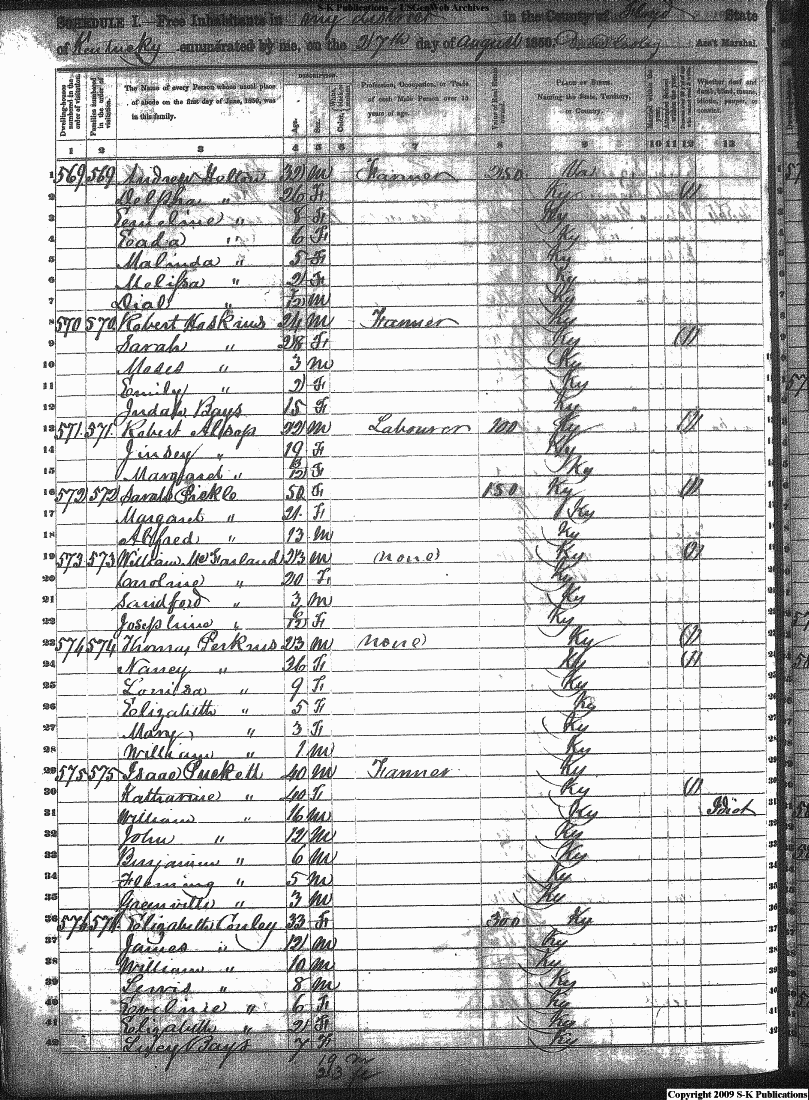 S-K Publications - USGenWeb Archives
SCHEDULE I.—Free Inhabitants in any district in the County of Floyd State
of Kentucky enumerated by me, on the 27th day of August 1850. Ass't Marshal.
DESCRIPTION
Dwelling-houses numbered in the order of visitation. Families numbered in the order of visitation. The Name of every Person whose usual place of abode on the first day of June, 1850, was in this family. Age. Sex. Profession, Occupation, or Trade of each Male Person over 15 years of age. Value of Real Estate owned. PLACE OF BIRTH. Naming the State, Territory, or Country. Whether deaf and dumb, blind, insane, idiotic, pauper, or convict.
1 2 3 4 5 6 7 8 9 10 11 12 13
1 569 569 Andrew Helton 32 M Farmer 250 Va
2 Delpha " 26 F Ky (1)
3 Emeline " 8 F Ky
4 Eada " 6 F Ky
5 Malinda " 5 F Ky
6 Melissa " 2 F Ky
7 Dial " M Ky
8 570 570 Robert Hoskins 24 M Farmer Ky
9 Sarah " 28 F Ky (1)
10 Moses " 3 M Ky
11 Emily " 2 F Ky
12 Judah Bays 15 F Ky
13 571 571 Robert Alsop 22 M Labourer Ky
14 Jinsey " 19 F Ky
15 Margaret " F Ky
16 572 572 Sarah Pickle 50 F 150 Ky (1)
17 Margaret " 21 F Ky
18 Allfred " 13 M Ky
19 573 573 William McFarland 23 M none Ky
20 Caroline " 20 F Ky
21 Sandford " 3 M Ky
22 Josephine " F Ky
23 574 574 Thomas Perkins 23 M none Ky
24 Nancy " 36 F Ky (1)
25 Louisa " 9 F Ky
26 Elizabeth " 5 F Ky
27 Mary " 3 F Ky
28 William " 1 M Ky
29 575 575 Isaac Puckett 40 M Farmer Ky
30 Katharine " 40 F Ky (1)
31 William " 16 M Ky Idiot
32 John " 12 M Ky
33 Benjamin " 6 M Ky
34 Fleming " 5 M Ky
35 Greenville " 3 M Ky
36 576 576 Elizabeth Conley 33 F 300 Ky
37 James " 12 M Ky
38 William " 10 M Ky
39 Lewis " 8 M Ky
40 Eveline " 6 F Ky
41 Elizabeth " 2 F Ky
42 Lucy Bays 7 F Ky
19 M
23 F
Copyright 2009 S-K Publications